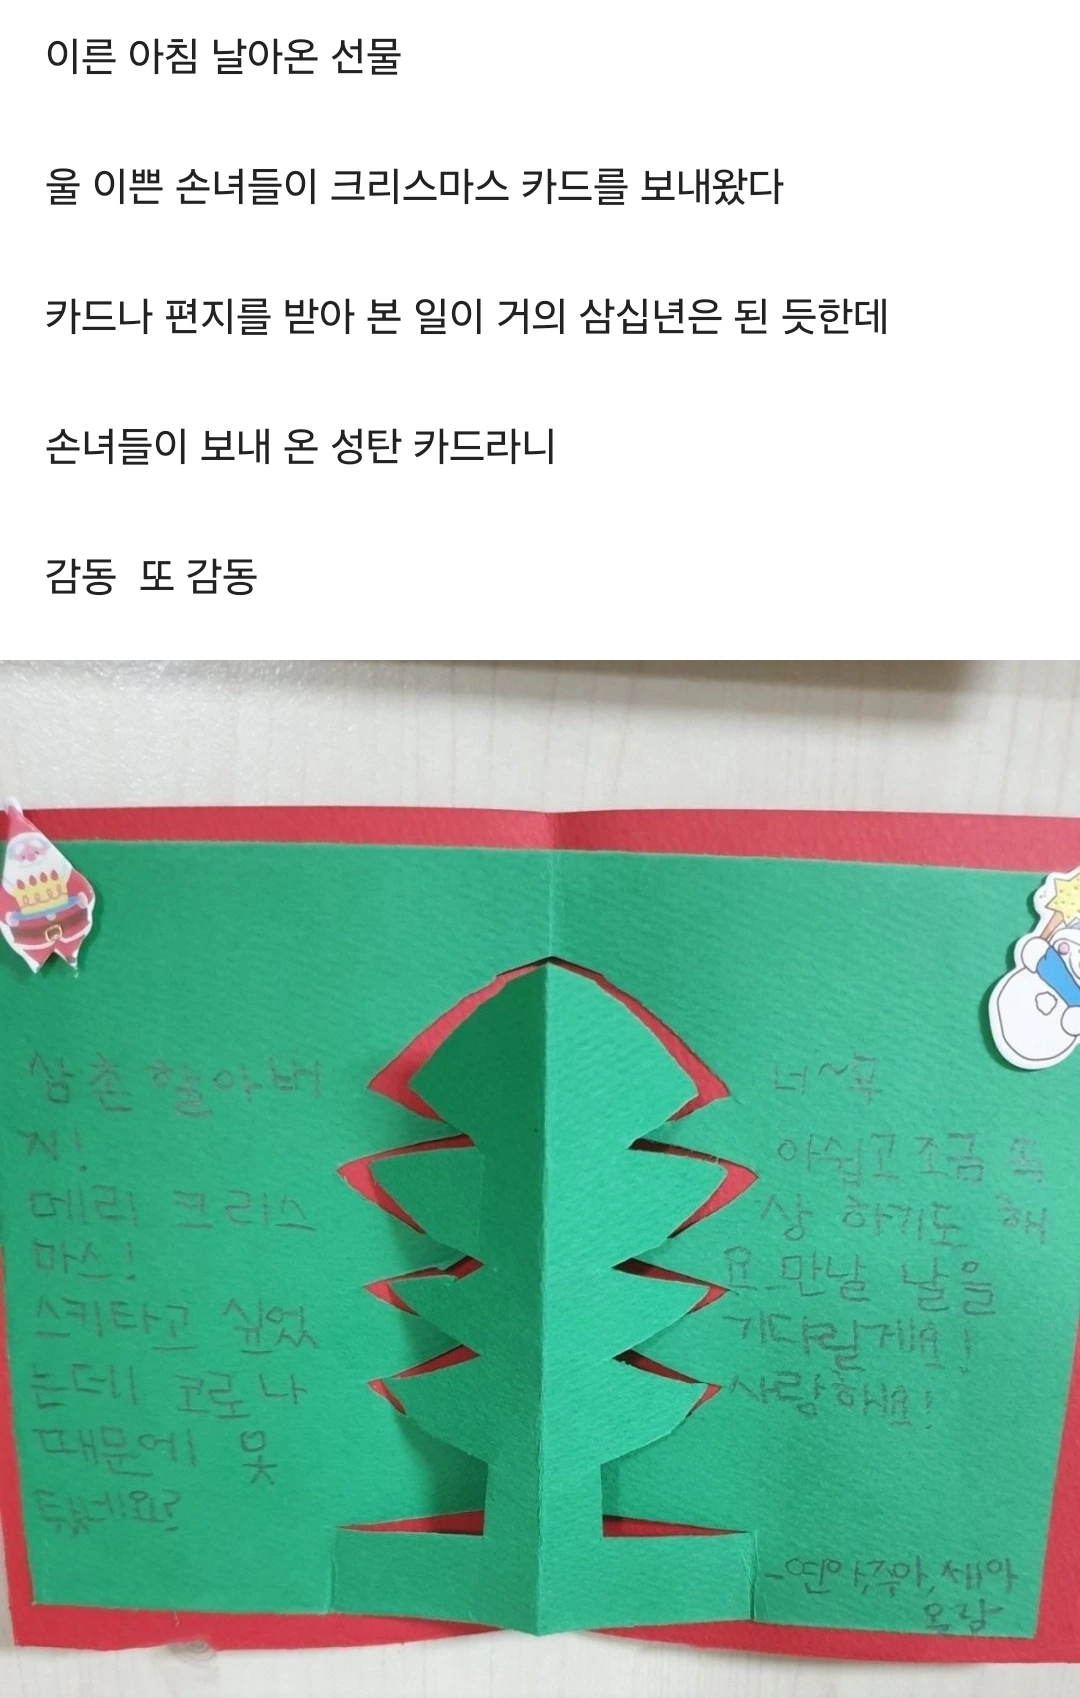 이른 아침 날아온 선물
울 이쁜 손녀들이 크리스마스 카드를 보내왔다
카드나 편지를 받아 본 일이 거의 삼십년은 된 듯한데
손녀들이 보내 온 성탄 카드라니
감동  또 감동
삼촌 할아버
지!
메리 크리스
마스!
스키타고 싶었
는데 코로나
때문에 못
너~무
아쉽고 조금 속
상 하기도 해
요 만날 날을
기다릴게요!
사랑해요!
-연아,주아,세아